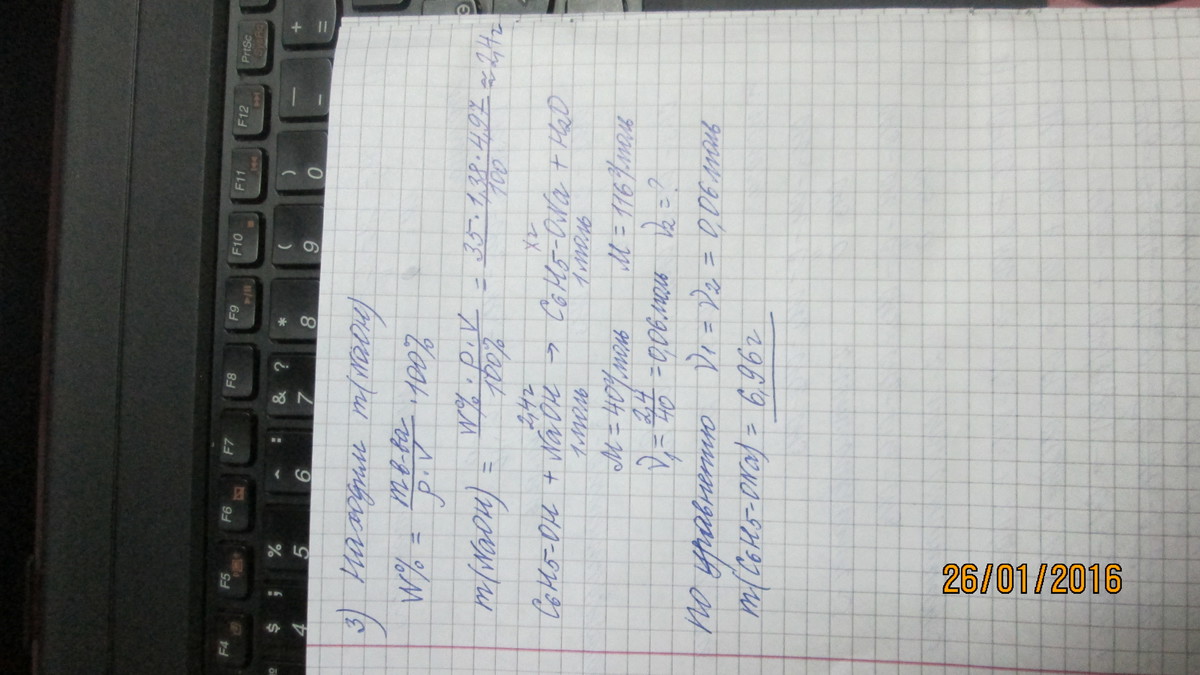 3) Находим m(NaOH)
W% = mв-ва / ρ·V · 100%
m(NaOH) = W%·ρ·V / 100% = 35·1,38·4,97 / 100 ≈ 2,4г
2,4г xг
C6H5-OH + NaOH → C6H5-ONa + H2O
1моль 1моль
M = 40г/моль M = 116г/моль
ν1 = 2,4 / 40 = 0,06моль ν2 = ?
по уравнению ν1 = ν2 = 0,06моль
m(C6H5-ONa) = 6,96г
PrtSc
F12
F11
F10
F9
F8
F7
F6
F5
F4
+ =
_ -
) 0
( 9
* 8
& ? 7
^ : 6
% 5
$ ; 4
26/01/2016